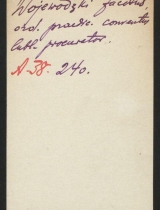 Wojewodzki Jacobus,
ord. praedic. conventus
Lubl. procurator.
A-38. 240.